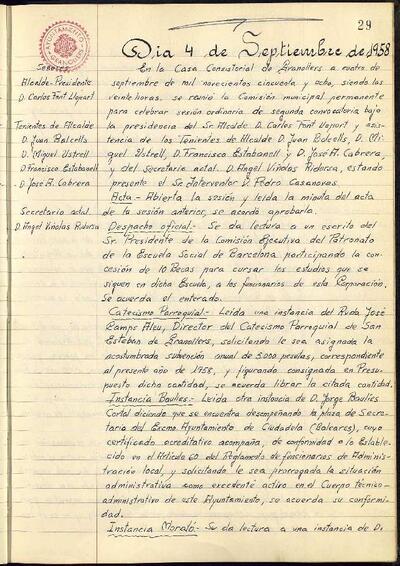 29
AYUNTAMIENTO
GRANOLLERS
Dia 4 de Septiembre de 1958
Señores
Alcalde-Presidente
D. Carlos Font Llopart
Tenientes de Alcalde
D. Juan Balcells
D. Miguel Ustrell
D. Francisco Estabanell
D. José A. Cabrera
Secretario actal.
D. Angel Viñolas Ridorsa
En la Casa Consistorial de Granollers a cuatro de
septiembre de mil novecientos cincuenta y ocho, siendo las
veinte horas, se reunió la Comisión municipal permanente
para celebrar sesión ordinaria de segunda convocatoria bajo
la presidencia del Sr. Alcalde D. Carlos Font Llopart y asis-
tencia de los Tenientes de Alcalde D. Juan Balcells, D. Mi-
guel Ustrell, D. Francisco Estabanell y D. José A. Cabrera,
y del Secretario actal. D. Angel Viñolas Ridorsa, estando
presente el Sr. Interventor D. Pedro Casanovas.
Acta.- Abierta la sesión y leida la minuta del acta
de la sesión anterior, se acordo aprobarla.
Despacho oficial.- Se da lectura a un escrito del
Sr. Presidente de la Comisión Ejecutiva del Patronato
de la Escuela Social de Barcelona participando la con-
cesión de 10 Becas para cursar los estudios que se
siguen en dicha Escuela, a los funcionarios de esta Corporación.
Se acuerda el enterado.
Catecismo Parroquial.- Leida una instancia del Rvdo. José
Camps Aleu, Director del Catecismo Parroquial de San
Esteban de Granollers, solicitando le sea asignada la
acostumbrada subvención anual de 5.000 pesetas, correspondiente
al presente año de 1958, y figurando consignada en Presu-
puesto dicha cantidad, se acuerda librar la citada cantidad.
Instancia Baulies.- Leida otra instancia de D. Jorge Baulies
Cortal diciendo que se encuentra desempeñando la plaza de Secre-
tario del Excmo. Ayuntamiento de Ciudadela (Baleares), cuyo
certificado acreditativo acompaña, de conformidad a lo Estable-
cido en el Articulo 60 del Reglamento de funcionarios de Adminis-
tración local, y solicitando le sea prorrogada la situación
administrativa como excedente activo en el Cuerpo técnico-
administrativo de este Ayuntamiento, se acuerda su conformi-
dad.
Instancia Morató.- Se da lectura a una instancia de D.